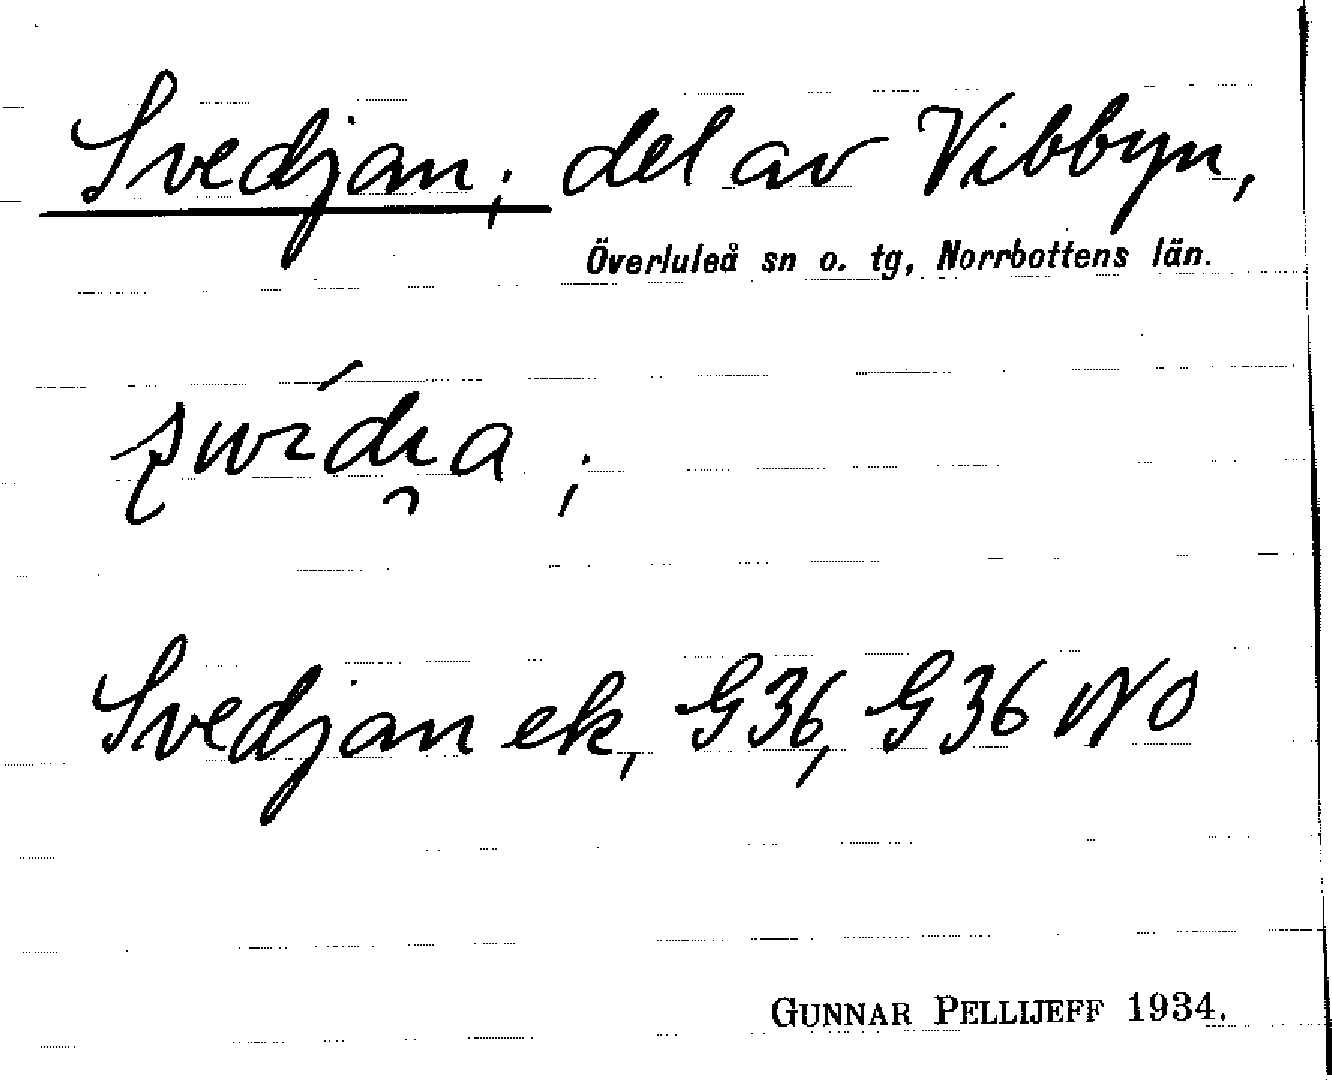 Svedjan; del av Vibbyn,
Överluleå sn o. tg, Norrbottens län.
Svedjan ek, G36, G36 NO
GUNNAR PELLIJEFF 1934.